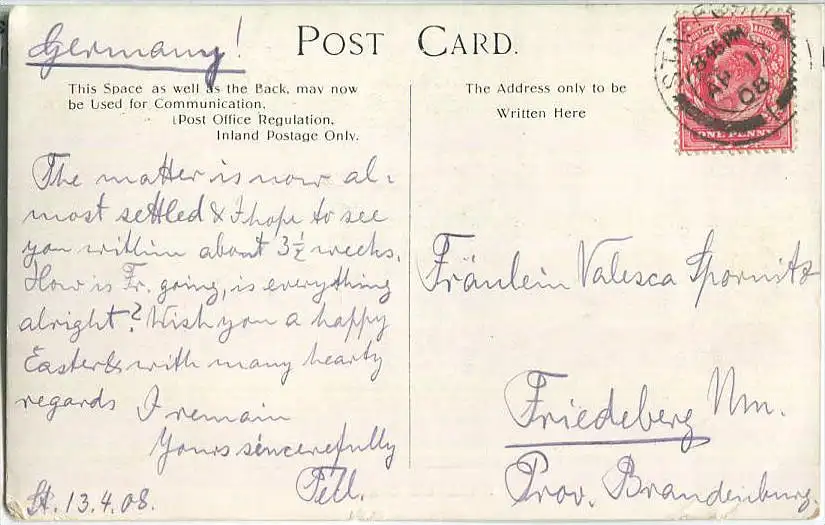 Germany!
POST CARD.
This Space as well as the Back, may now
be Used for Communication,
(Post Office Regulation,
Inland Postage Only.
The Address only to be
Written Here
8.45 PM
AP 1
08
ONE PENNY
The matter is now al=
most settled & I hope to see
you within about 3½ weeks.
How is Fr. going, is everything
alright? Wish you a happy
Easter & with many hearty
regards I remain
Yours sincerefully
Pell.
St. 13.4.08.
Fräulein Valesca Spornitz
Friedeberg Nm.
Prov. Brandenburg.